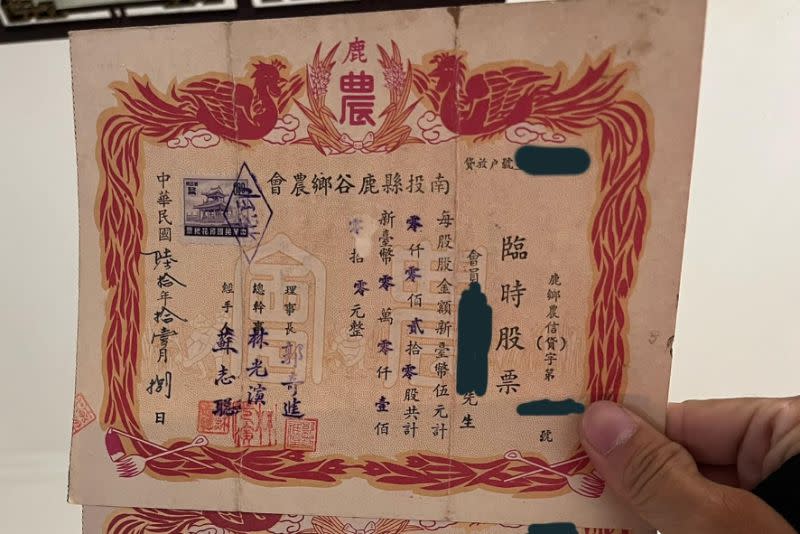 鹿
農
貸放戶號
南投縣鹿谷鄉農會
鹿鄉農信(貸)字第
號
臨時股票
會員
先生
每股股金額新臺幣伍元計
零仟零佰貳拾零股共計
新臺幣零萬零仟壹佰
零拾零元整
理事長郭奇進
總幹事林光演
經手人蘇志聰
中華民國陸拾年拾壹月捌日
中華民國印花稅票